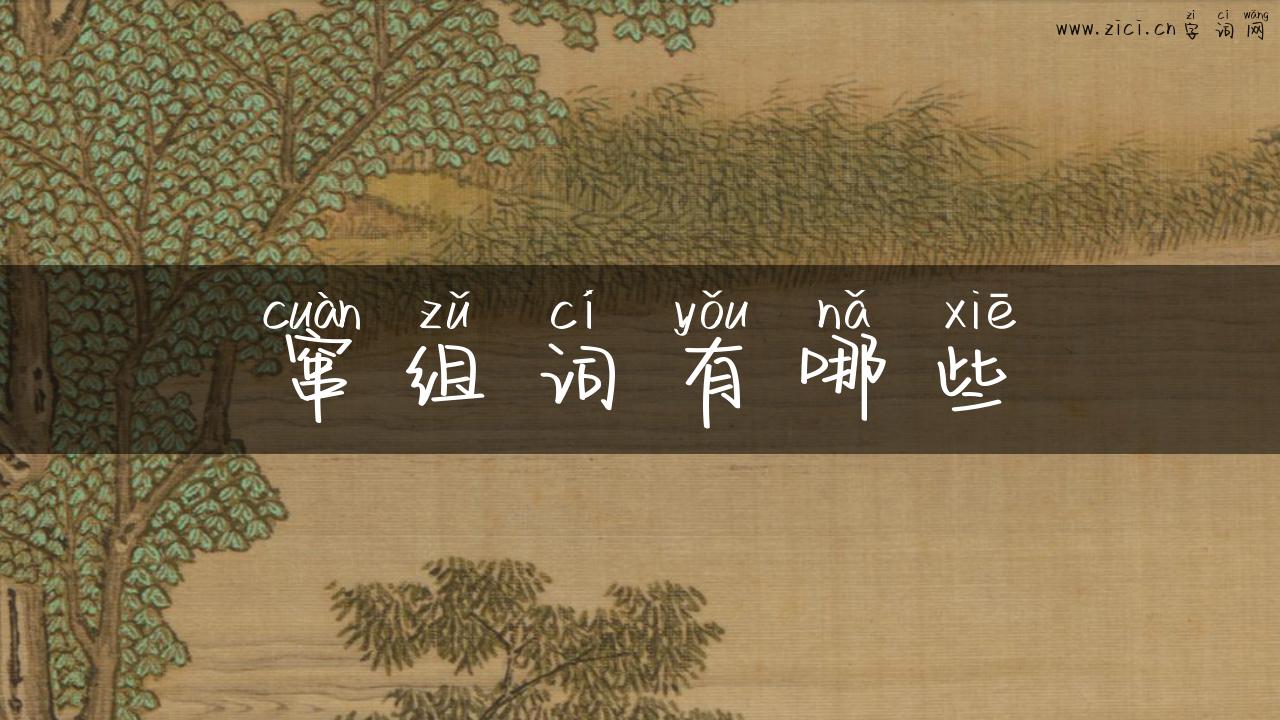 zì cí wǎng
www.zici.cn字词网
cuàn zǔ cí yǒu nǎ xiē
窜组词有哪些